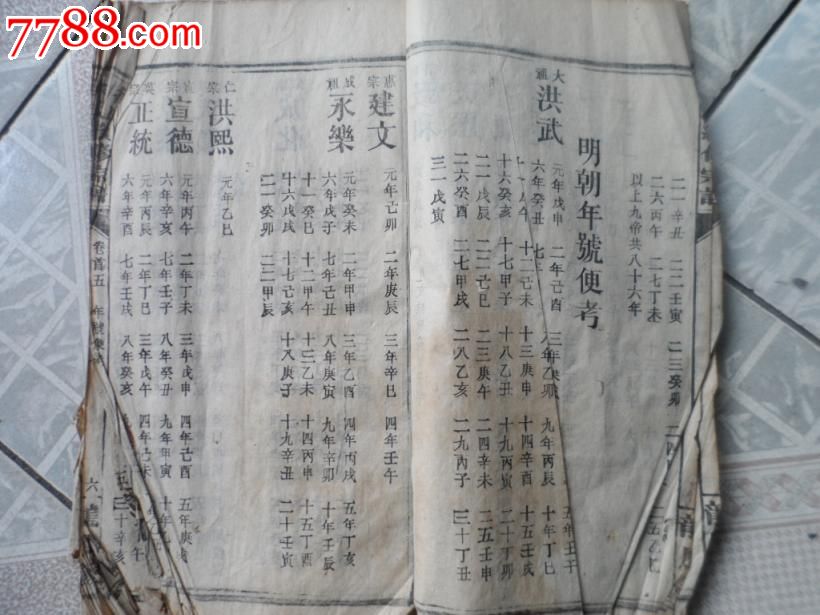 7788.com
二一辛丑 二二壬寅 二三癸卯
二六丙午 二七丁未
以上九帝共八十六年
明朝年號便考
大祖
洪武
元年戊申 二年己酉 三年庚 五年壬子
六年癸丑 八年乙卯 九年丙辰 十年丁巳
十二己未 十三庚申 十四辛酉 十五壬戌
十六癸亥 十七甲子 十八乙丑 十九丙寅 二十丁卯
二一戊辰 二二己巳 二三庚午 二四辛未 二五壬申
二六癸酉 二七甲戌 二八乙亥 二九丙子 三十丁丑
三一戊寅
惠宗
建文
元年己卯 二年庚辰 三年辛巳 四年壬午
成祖
永樂
元年癸未 二年甲申 三年乙酉 四年丙戌 五年丁亥
六年戊子 七年己丑 八年庚寅 九年辛卯 十年壬辰
十一癸巳 十二甲午 十三乙未 十四丙申 十五丁酉
十六戊戌 十七己亥 十八庚子 十九辛丑 二十壬寅
二一癸卯 二二甲辰
仁宗
洪熙
元年乙巳
宣宗
宣德
元年丙午 二年丁未 三年戊申 四年己酉 五年庚戌
六年辛亥 七年壬子 八年癸丑 九年甲寅 十年乙
英宗
正統
元年丙辰 二年丁巳 三年戊午 四年己未
六年辛酉 七年壬戌 八年癸亥
卷首五 年號 六